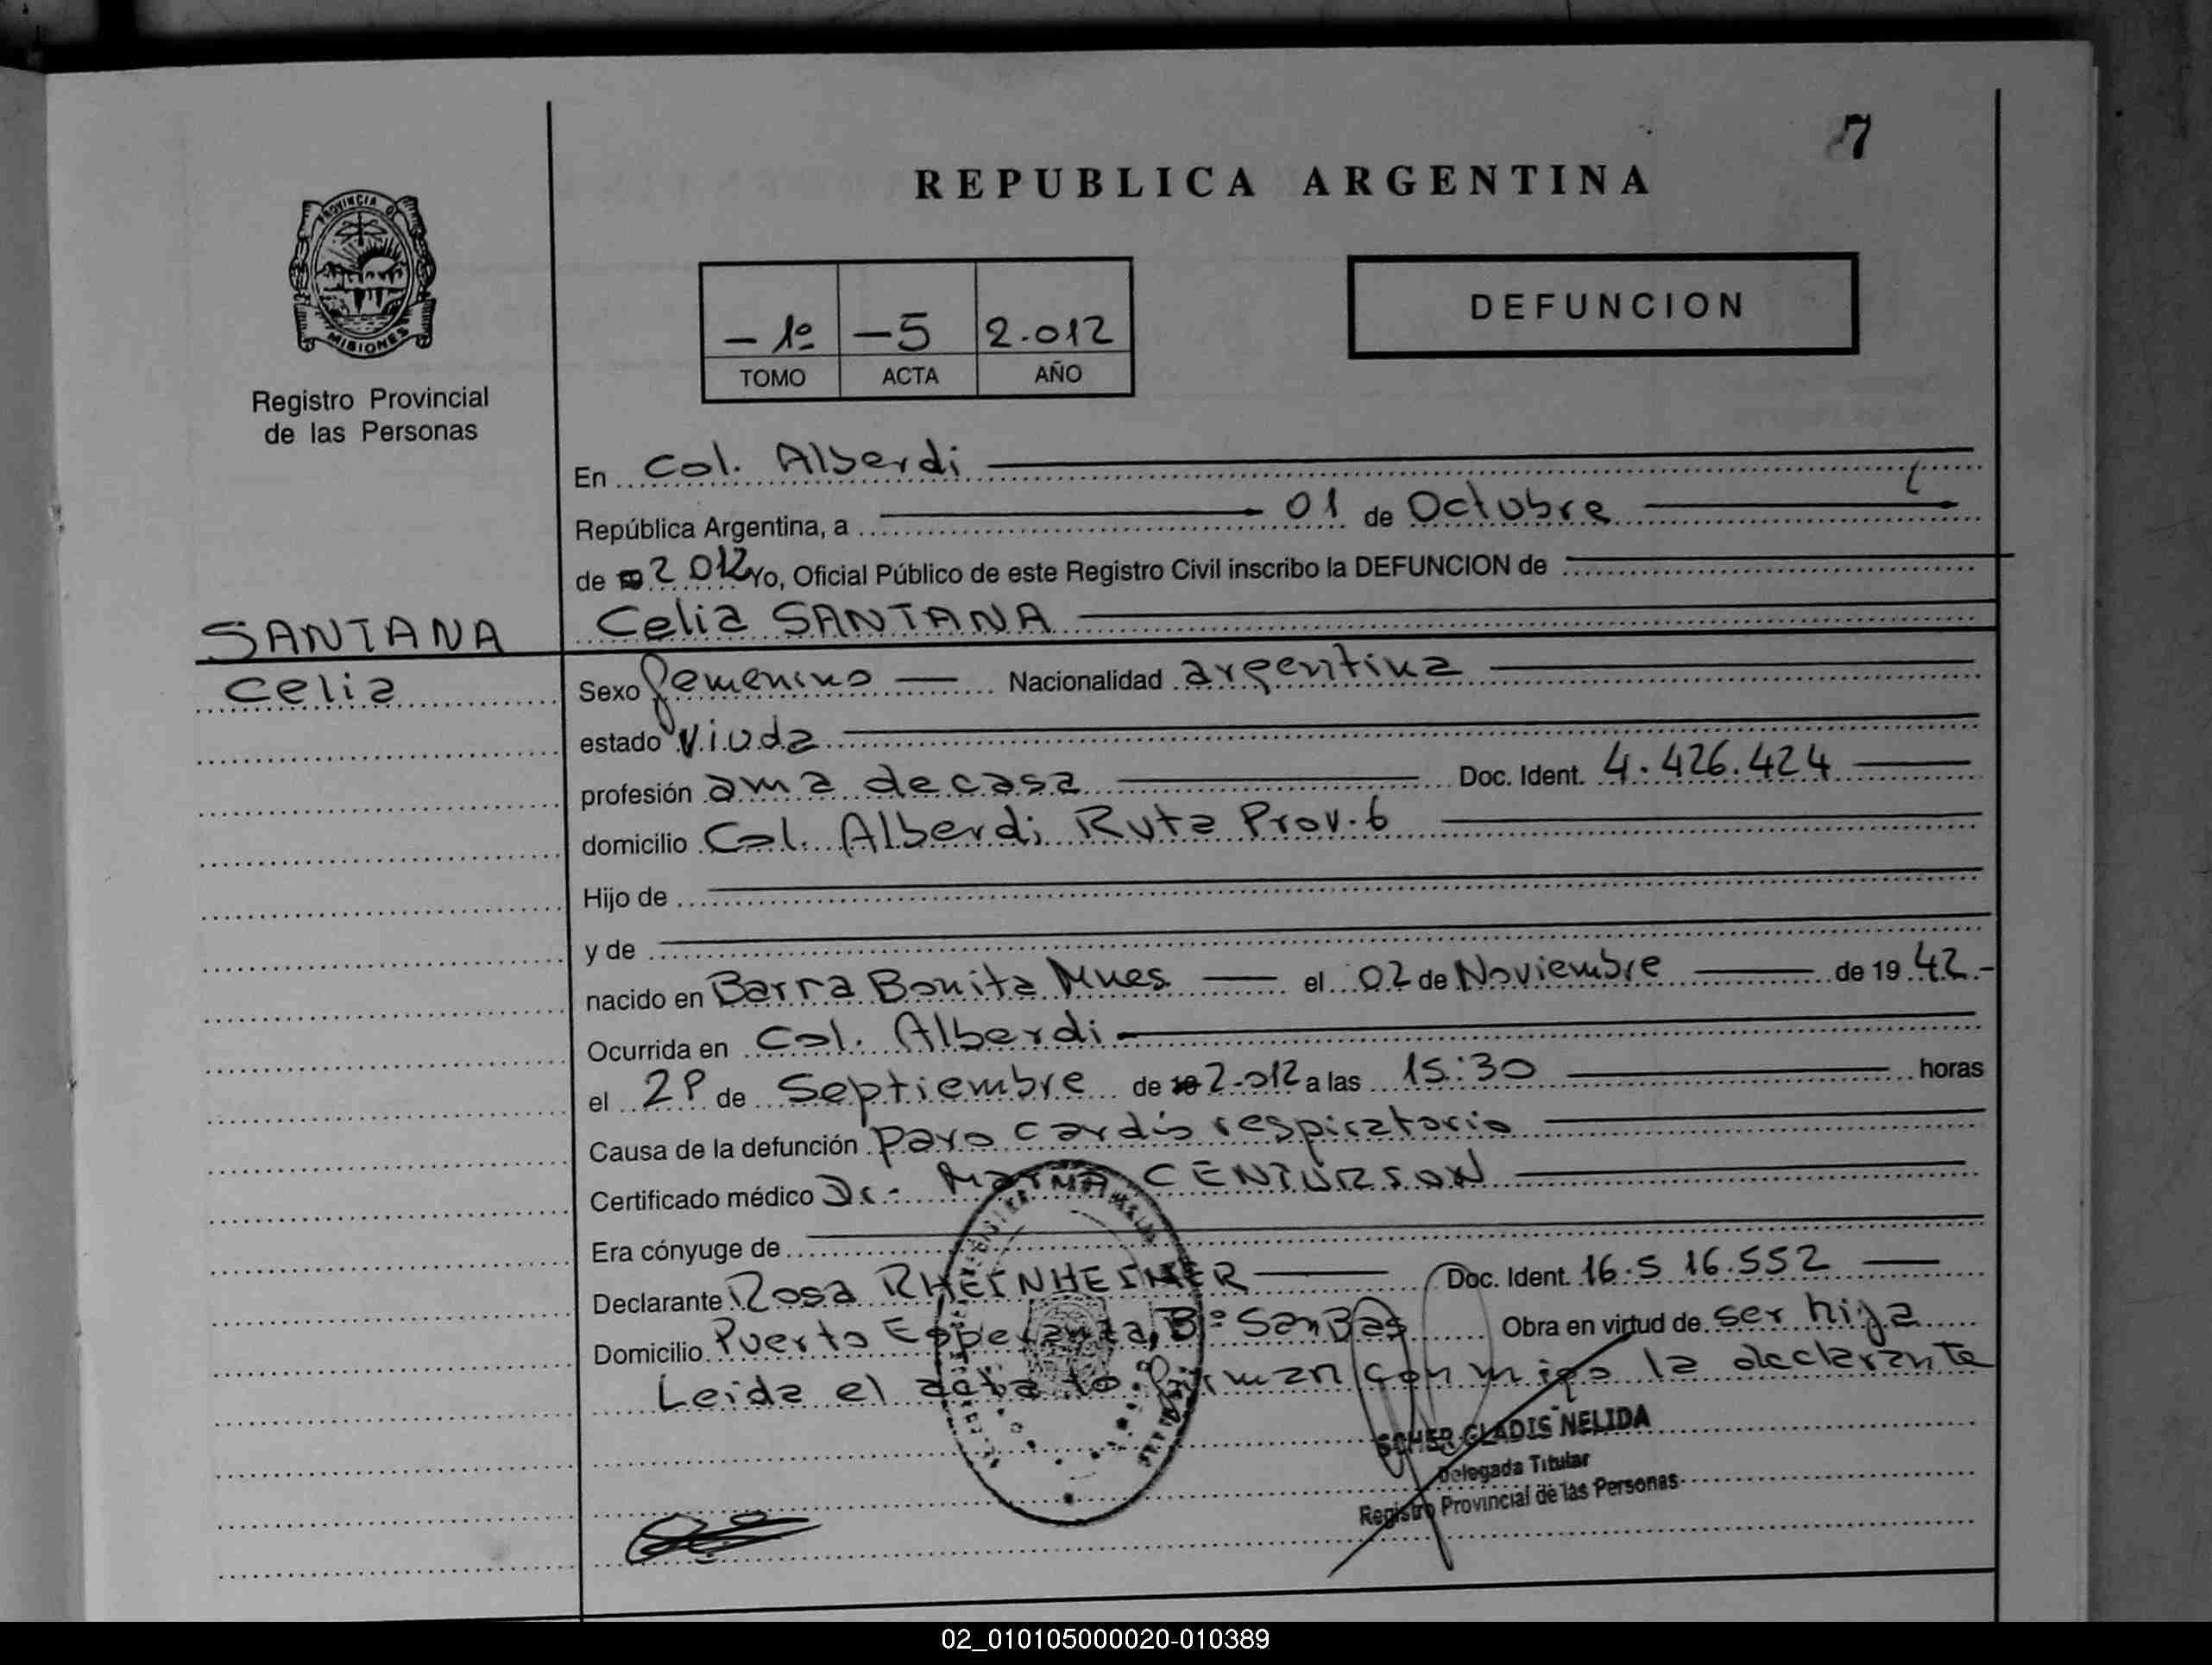 7
REPUBLICA ARGENTINA
PROVINCIA DE
MISIONES
Registro Provincial
de las Personas
- 1º -5 2.012
TOMO ACTA AÑO
DEFUNCION
En Col. Alberdi
República Argentina, a 01 de Octubre
de 2012 Yo, Oficial Público de este Registro Civil inscribo la DEFUNCION de
SANTANA
Celia
Celia SANTANA
Sexo femenino Nacionalidad argentina
estado viuda
profesión ama de casa Doc. Ident. 4.426.424
domicilio Col. Alberdi Ruta Prov. 6
Hijo de
y de
nacido en Barra Bonita Mnes el 02 de Noviembre de 19 42.-
Ocurrida en Col. Alberdi
el de Septiembre de 2.012 a las 15:30 horas
Causa de la defunción paro cardio respiratorio
Certificado médico Dr. CENTURION
Era cónyuge de
Declarante Rosa RHEINHEIMER Doc. Ident. 16.516.552
Domicilio Puerto Esperanza, Bº San Bas Obra en virtud de ser hija
Leida el acta lo firman conmigo la declarante
SCHER GLADIS NELIDA
Delegada Titular
Registro Provincial de las Personas
02_010105000020-010389